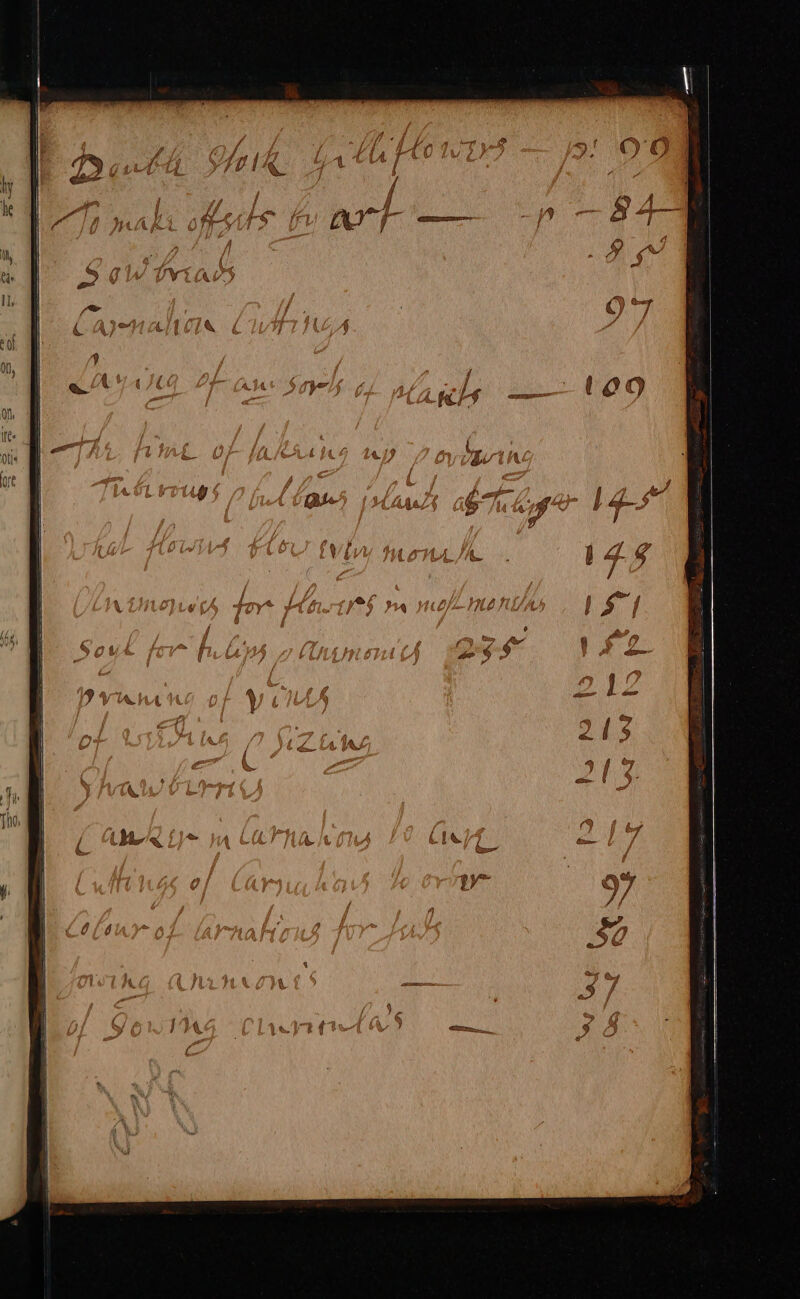 Doubl Stock Gilliflowers — p: 99
To make offsets by art — p — 84
Sowbriads 95
Carnation Cuttings 97
Laying of any sorts of plants — 109
The time of taking up
Tuberous bulbous plants 145
What flowers blow every month 148
Annimonies for flowers in most months 151
Soyl for tulips Annimonies 235 152
pruning of vines 212
of 213
Strawberries 213
Canker in Carnations to Cure 217
Cuttings of Carnations to order 97
Colour of Carnations for 50
sowing Annimonies — 37
of Sowing — 38
hy
he
on,
11,
of
on,
on,
fore
Tho